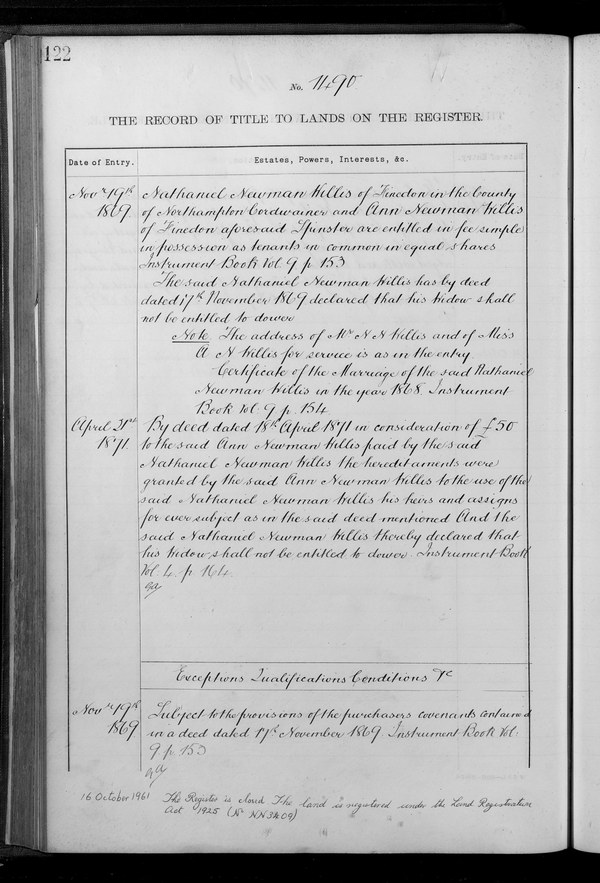 122
No. 11490
THE RECORD OF TITLE TO LANDS ON THE REGISTER.
Date of Entry.
Estates, Powers, Interests, &c.
Novr 19th
1869
Nathaniel Newman Willis of Finedon in the County
of Northampton Cordwainer and Ann Newman Willis
of Finedon aforesaid Spinster are entitled in fee simple
in possession as tenants in common in equal shares
Instrument Book Vol. 9 p. 153
The said Nathaniel Newman Willis has by deed
dated 17th November 1869 declared that his widow shall
not be entitled to dower
Note The address of Mr N N Willis and of Miss
A N Willis for service is as in the entry
Certificate of the Marriage of the said Nathaniel
Newman Willis in the year 1868. Instrument
Book Vol. 9 p. 154
April 21st
1871.
By deed dated 18th April 1871 in consideration of £50
to the said Ann Newman Willis paid by the said
Nathaniel Newman Willis the hereditaments were
granted by the said Ann Newman Willis to the use of the
said Nathaniel Newman Willis his heirs and assigns
for ever subject as in the said deed mentioned And the
said Nathaniel Newman Willis thereby declared that
his widow shall not be entitled to dower. Instrument Book
Vol. 4. p. 164.
Exceptions Qualifications Conditions &c
Novr 19th
1869
Subject to the provisions of the purchasers covenants contained
in a deed dated 17th November 1869. Instrument Book Vol:
9 p. 153
16 October 1961
The Register is closed. The land is registered under the Land Registration
Act 1925 (No NN3409)